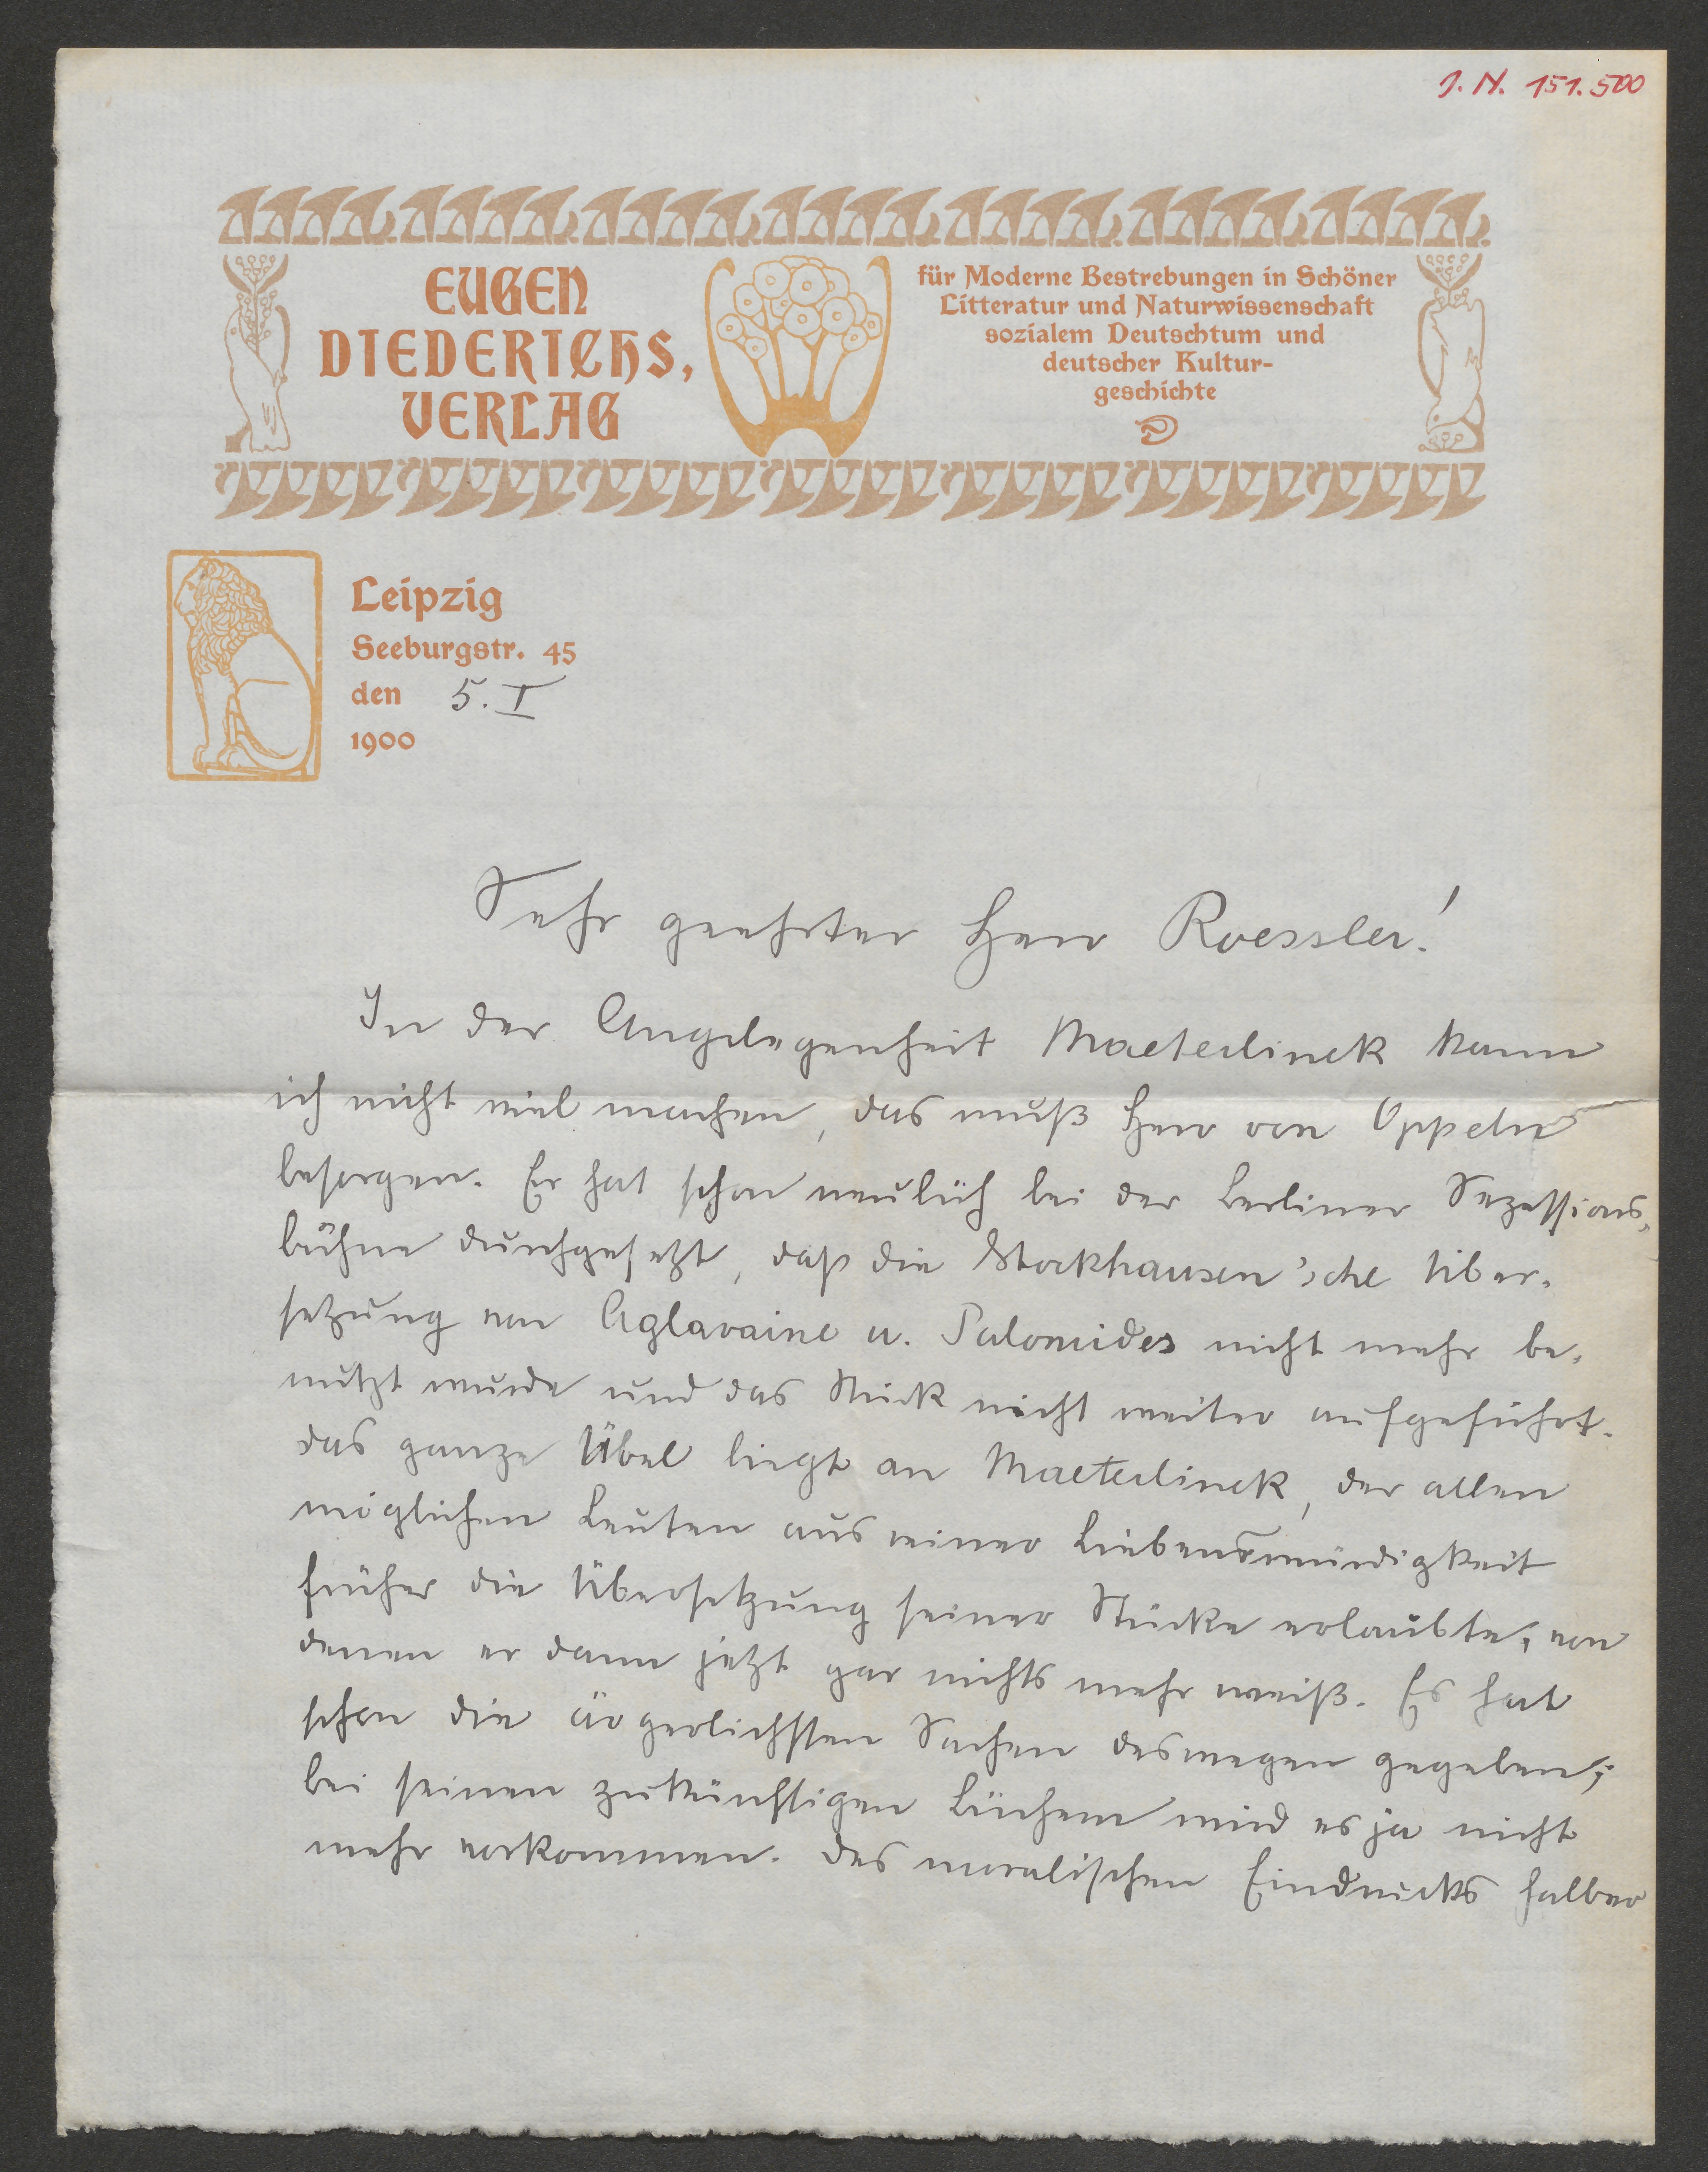 J. N. 151.500
EUGEN
DIEDERICHS,
VERLAG
für Moderne Bestrebungen in Schöner
Litteratur und Naturwissenschaft
sozialem Deutschtum und
deutscher Kultur-
geschichte
Leipzig
Seeburgstr. 45
den 5. I
1900
Sehr geehrter Herr Roessler!
In der Angelegenheit Maeterlinck kann
ich nicht viel machen, das muß Herr von Oppeln
besorgen. Er hat schon neulich bei der Berliner Sezessions-
bühne durchgesetzt, daß die Stockhausen'sche Über-
setzung von Aglavaine u. Palomides nicht mehr be-
nutzt wurde und das Stück nicht weiter aufgeführt.
das ganze Übel liegt an Maeterlinck, der allen
möglichen Leuten aus reiner Liebenswürdigkeit
früher die Übersetzung seiner Stücke erlaubte, von
denen er dann jetzt gar nichts mehr weiß. Es hat
schon die ärgerlichsten Sachen deswegen gegeben;
bei seinen zukünftigen Büchern wird es ja nicht
mehr vorkommen. Des moralischen Eindrucks halber